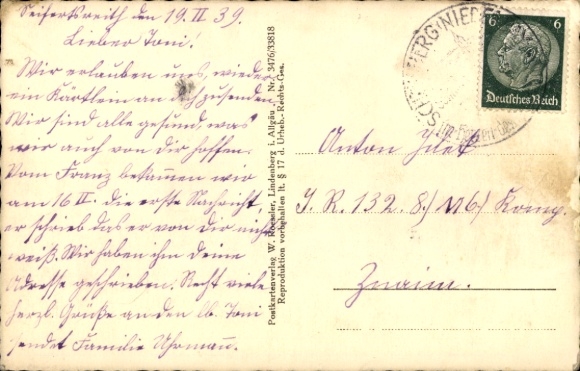 Seifertsreith den 19. II 39.
Lieber Toni!
Wir erlauben uns, wieder
ein Kärtlein an dich zusenden.
Wir sind alle gesund, was
wir auch von dir hoffen.
Vom Franz bekamen wir
am 16 II. die erste Nachricht,
er schrieb das er von dir nichts
weiß. Wir haben ihm deine
Adresse geschrieben. Recht viele
herzl. Grüße an den lb. Toni
sendet Familie Uhrmann.
Postkartenverlag W. Roessler, Lindenberg i. Allgäu Nr. 3476/33818
Reproduktion vorbehalten lt. § 17 d. Urheb.-Rechts-Ges.
6 6
Deutsches Reich
Anton
J. R. 132. 8./ Komp.
Znaim.